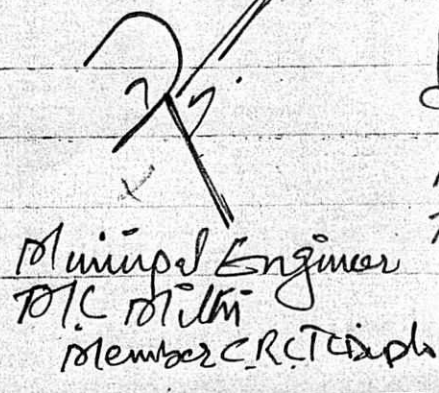 Municipal Engineer
M/C Mithi
Member C.R.C.T.C